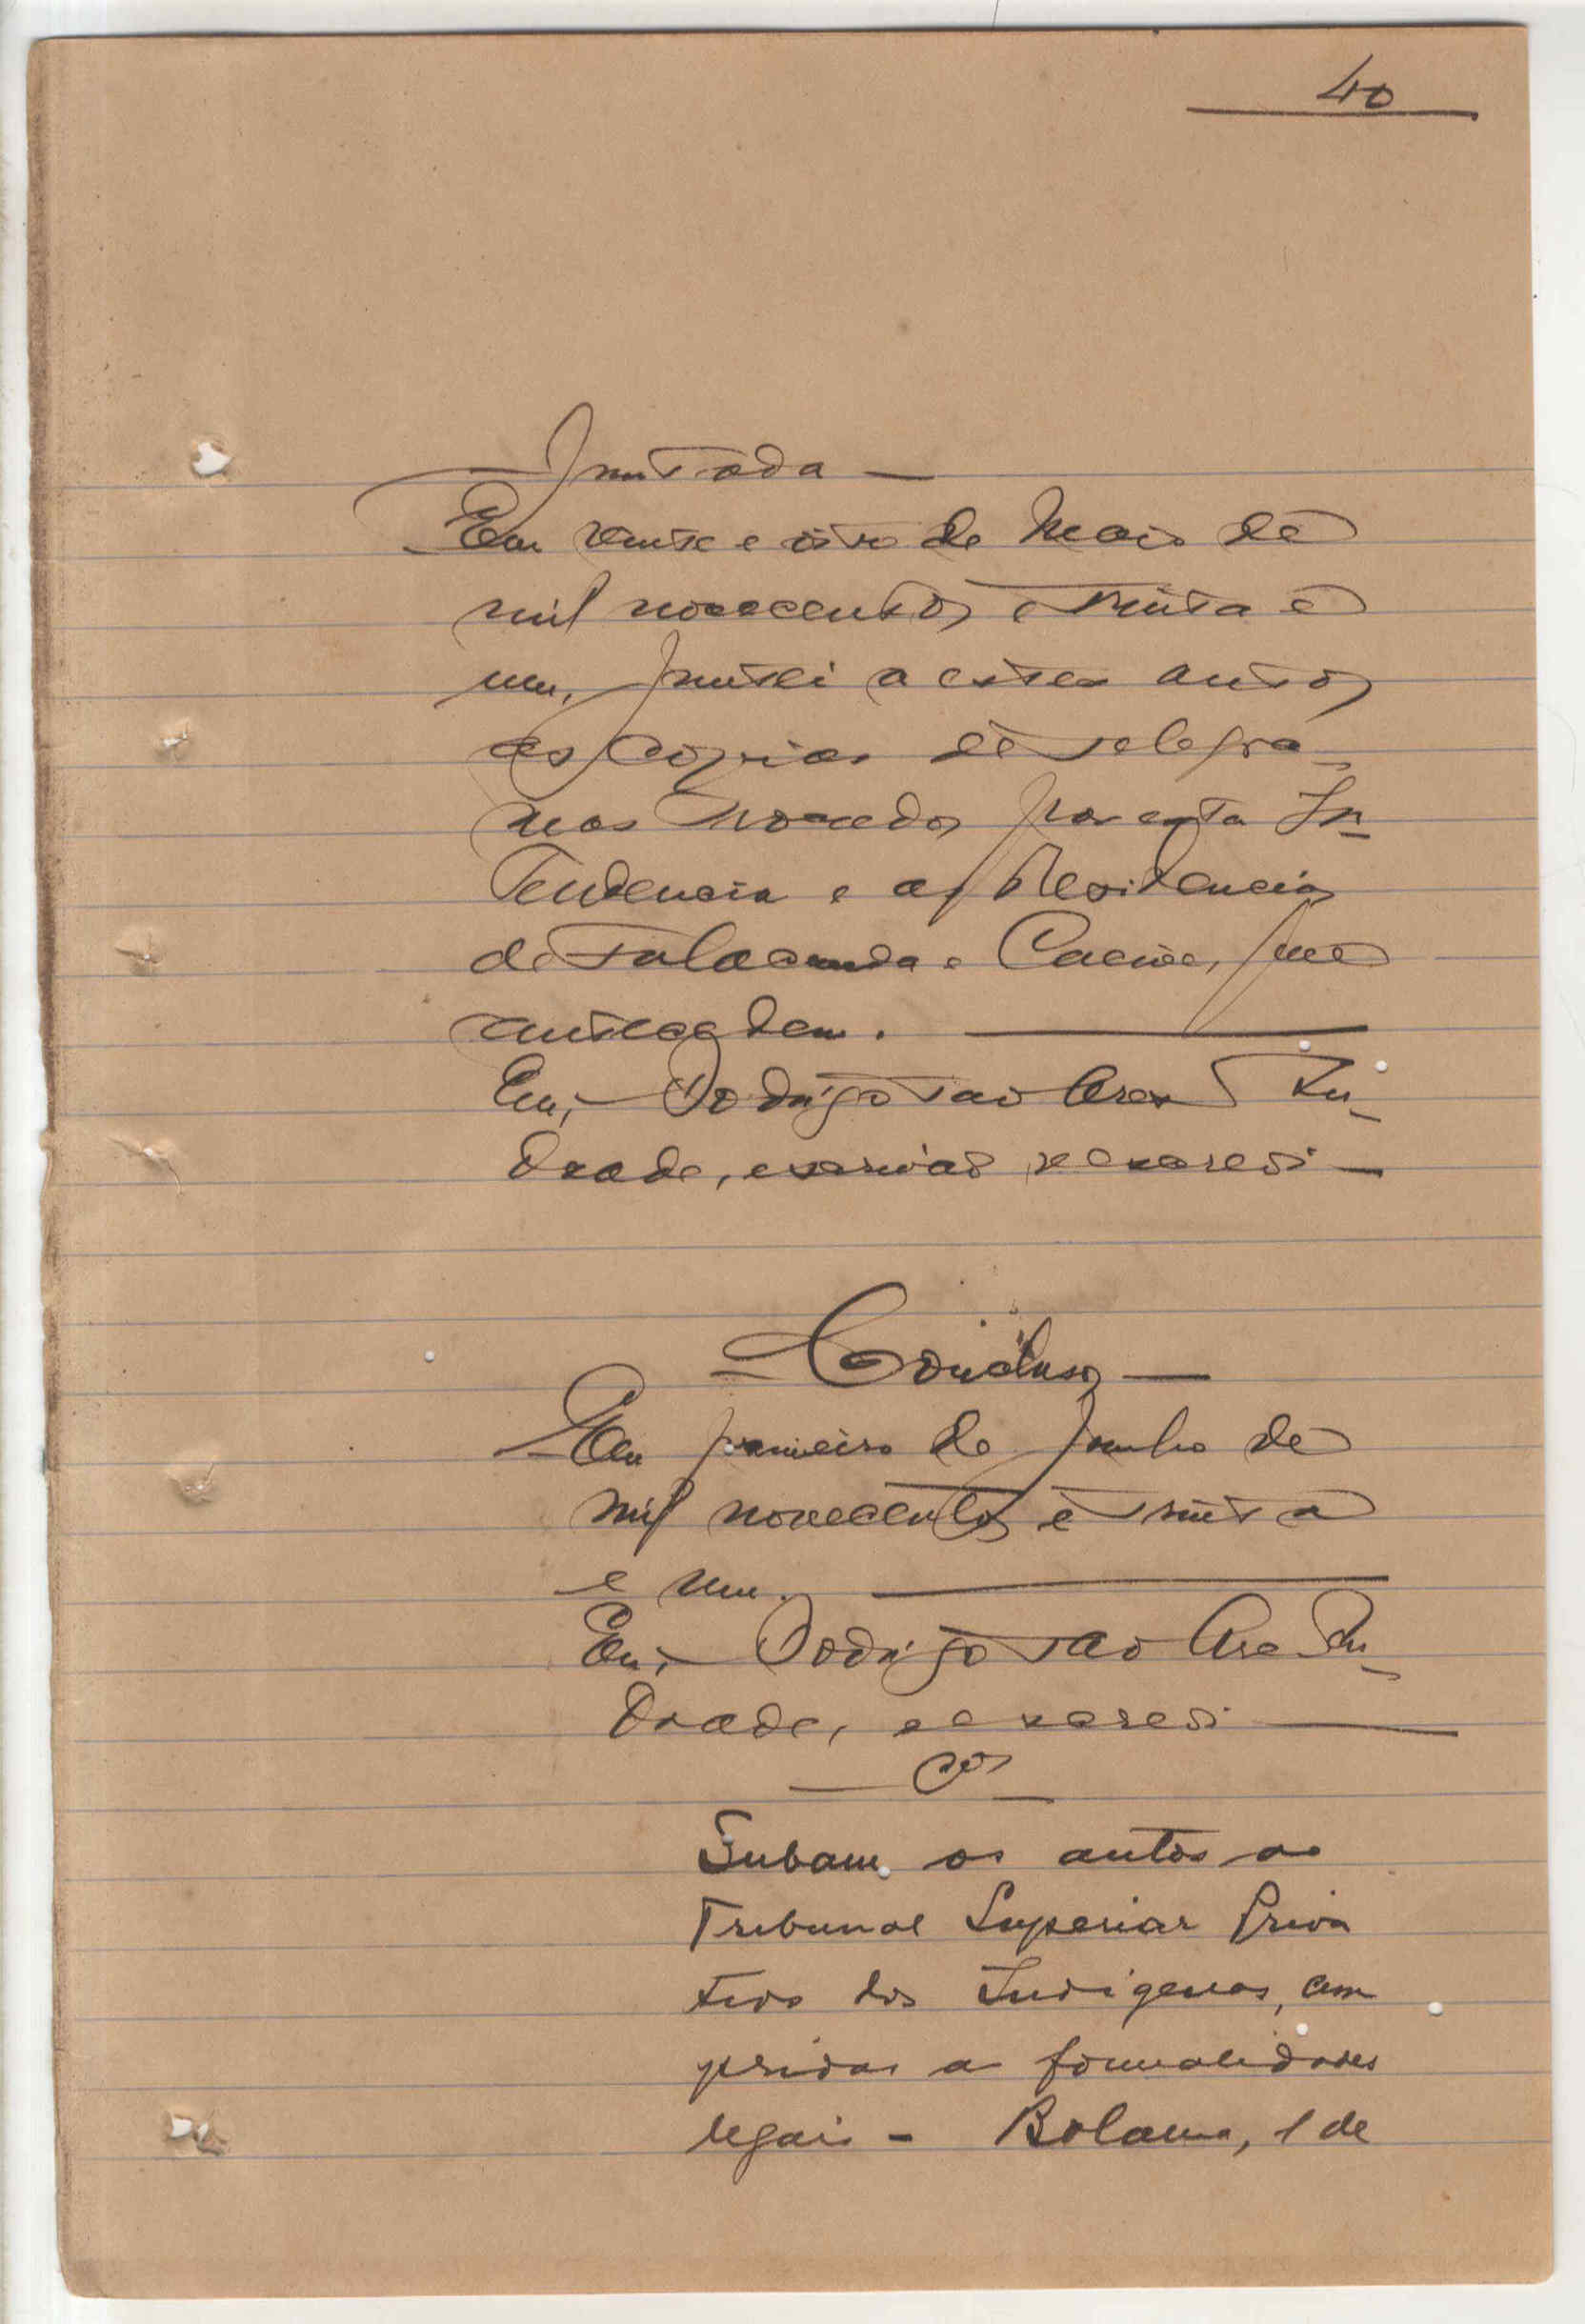 40
Juntada —
Em vinte e oito de Maio de
mil novecentos e trinta e
um, juntei a estes autos
as copias de telegra-
mas trocados por esta In-
tendencia e as Residencias
de e Cacine, que
antecedem.
Eu, Rodrigo An-
drade, escrivão, o escrevi —
— Conclusos —
Em primeiro de Junho de
mil novecentos e trinta
e um.
Eu, Rodrigo An-
drade, o escrevi
— Cos —
Subam os autos ao
Tribunal Superior Priva
tivo dos Indigenas, cum
pridas as formalidades
legais - Bolama, 1 de